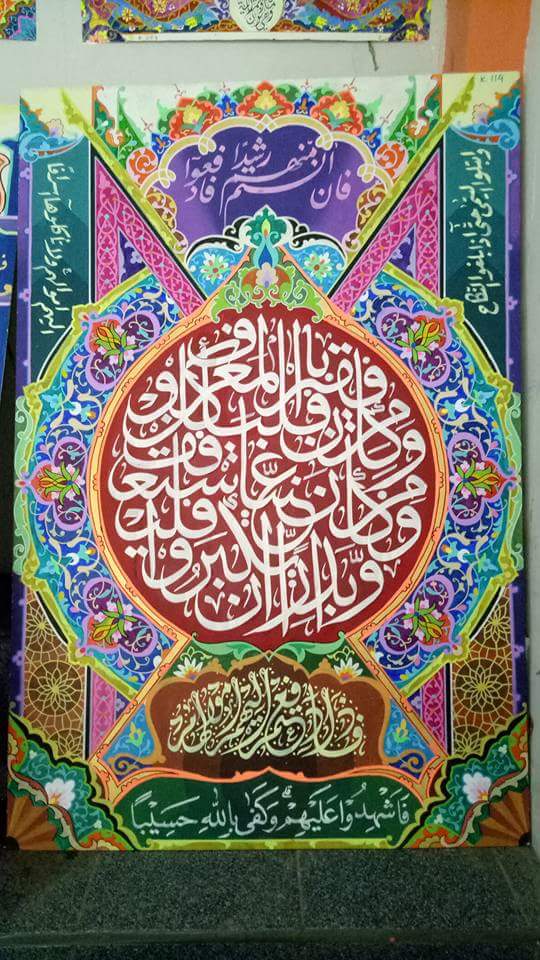 K. 114
وابتلوا اليتمى حتى إذا بلغوا النكاح
فان انستم منهم رشدا فادفعوا
اليهم اموالهم ولا تأكلوها اسرافا
وبدارا ان يكبروا
ومن كان غنيا فليستعفف
ومن كان فقيرا فليأكل بالمعروف
فاذا دفعتم اليهم اموالهم
فَاَشْهِدُوا عَلَيْهِمْ ۗ وَكَفٰى بِاللّٰهِ حَسِيْبًا